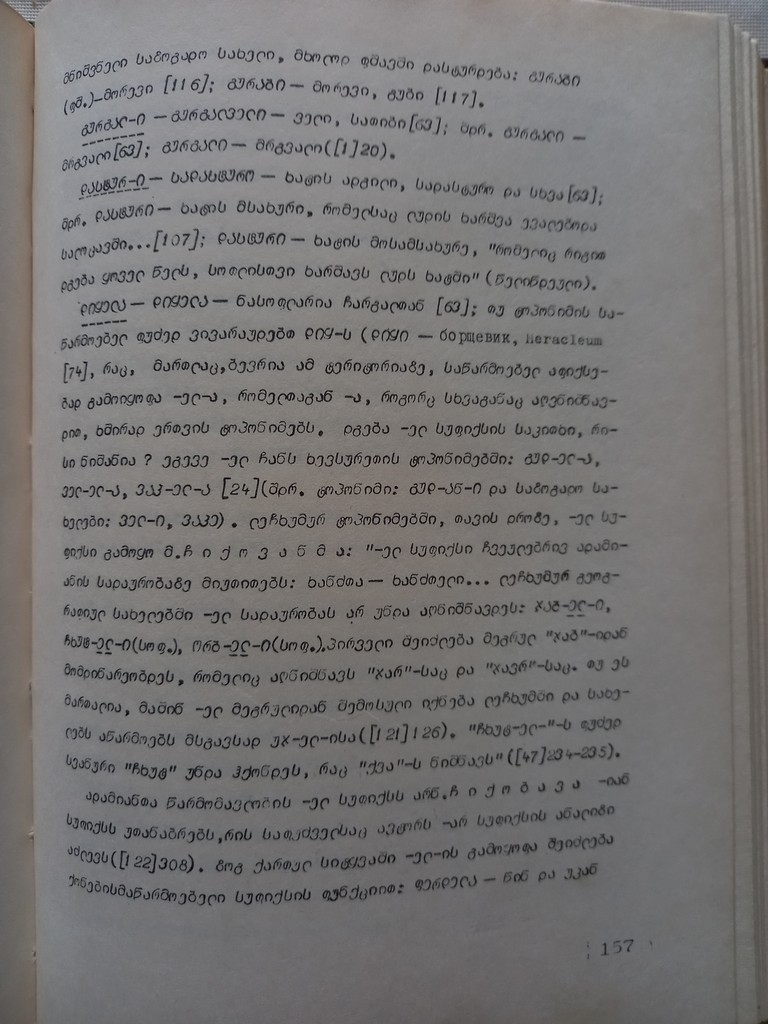 მნიშვნელი საზოგადო სახელი, მხოლოდ ფშავში დასტურდება: გურაბი
(ფშ.)–მორევი [116]; გურაბი — მორევი, გუბი [117].
გურგალ-ი — გურგალველი — ველი, სათიბი[63]; შდრ. გურგალი —
მრგვალი[63]; გურგალი — მრგვალი([1]20).
დასტურ-ი — სადასტურო — ხატის ადგილი, სადასტურო და სხვა[63];
შდრ. დასტური — ხატის მსახური, რომელსაც ლუდის ხარშვა ევალებოდა
სალოცავში...[107]; დასტური — ხატის მოსამსახურე, "რომელიც რიგით
დგება ყოველ წელს, სოფლისთვი ხარშავს ლუდს ხატში" (წელიწდეული).
დიყელა — დიყელა — ნასოფლარია ჩარგალთან [63]; თუ ტოპონიმის სა-
წარმოებელ ფუძედ ვივარაუდებთ დიყ-ს (დიყი — борщевик, Heracleum
[74], რაც, მართლაც,ბევრია ამ ტერიტორიაზე, საწარმოებელ აფიქსე-
ბად გამოიყოფა -ელ-ა, რომელთაგან -ა, როგორც სხვაგანაც აღვნიშნავ-
დით, ხშირად ერთვის ტოპონიმებს. დგება -ელ სუფიქსის საკითხი, რი-
სი ნიშანია ? ეგევე -ელ ჩანს ხევსურეთის ტოპონიმებში: გუდ-ელ-ა,
ველ-ელ-ა, ვაკ-ელ-ა [24](შდრ. ტოპონიმი: გუდ-ან-ი და საზოგადო სა-
ხელები: ველ-ი, ვაკე). ლეჩხუმურ ტოპონიმებში, თავის დროზე, -ელ სუ-
ფიქსი გამოყო მ.ჩ ი ქ ო ვ ა ნ მ ა: "-ელ სუფიქსი ჩვეულებრივ ადამი-
ანის სადაურობაზე მიუთითებს: ხანძთა — ხანძთელი... ლეჩხუმურ გეოგ-
რაფიულ სახელებში -ელ სადაურობას არ უნდა აღნიშნავდეს: ჯაგ-ელ-ი,
ჩხუტ-ელ-ი(სოფ.), ორბ-ელ-ი(სოფ.).პირველი შეიძლება მეგრულ "ჯაგ"-იდან
მომდინარეობდეს, რომელიც აღნიშნავს "ჯარ"-საც და "ჯავრ"-საც. თუ ეს
მართალია, მაშინ -ელ მეგრულიდან შემოსული იქნება ლეჩხუმში და სახე-
ლებს აწარმოებს მსგავსად უჯ-ელ-ისა([121]126). "ჩხუტ-ელ-"-ს ფუძედ
სვანური "ჩხუტ" უნდა ჰქონდეს, რაც "ქვა"-ს ნიშნავს"([47]234-235).
ადამიანთა წარმომავლობის -ელ სუფიქსს არნ.ჩ ი ქ ო ბ ა ვ ა -იან
სუფიქსს უთანაბრებს,რის საფუძველსაც ავტორს -არ სუფიქსის ანალიზი
აძლევს([122]308). ზოგ ქართულ სიტყვაში -ელ-ის გამოყოფა შეიძლება
ქონებისმაწარმოებელი სუფიქსის ფუნქციით: ფერდელა — წინ და უკან
157